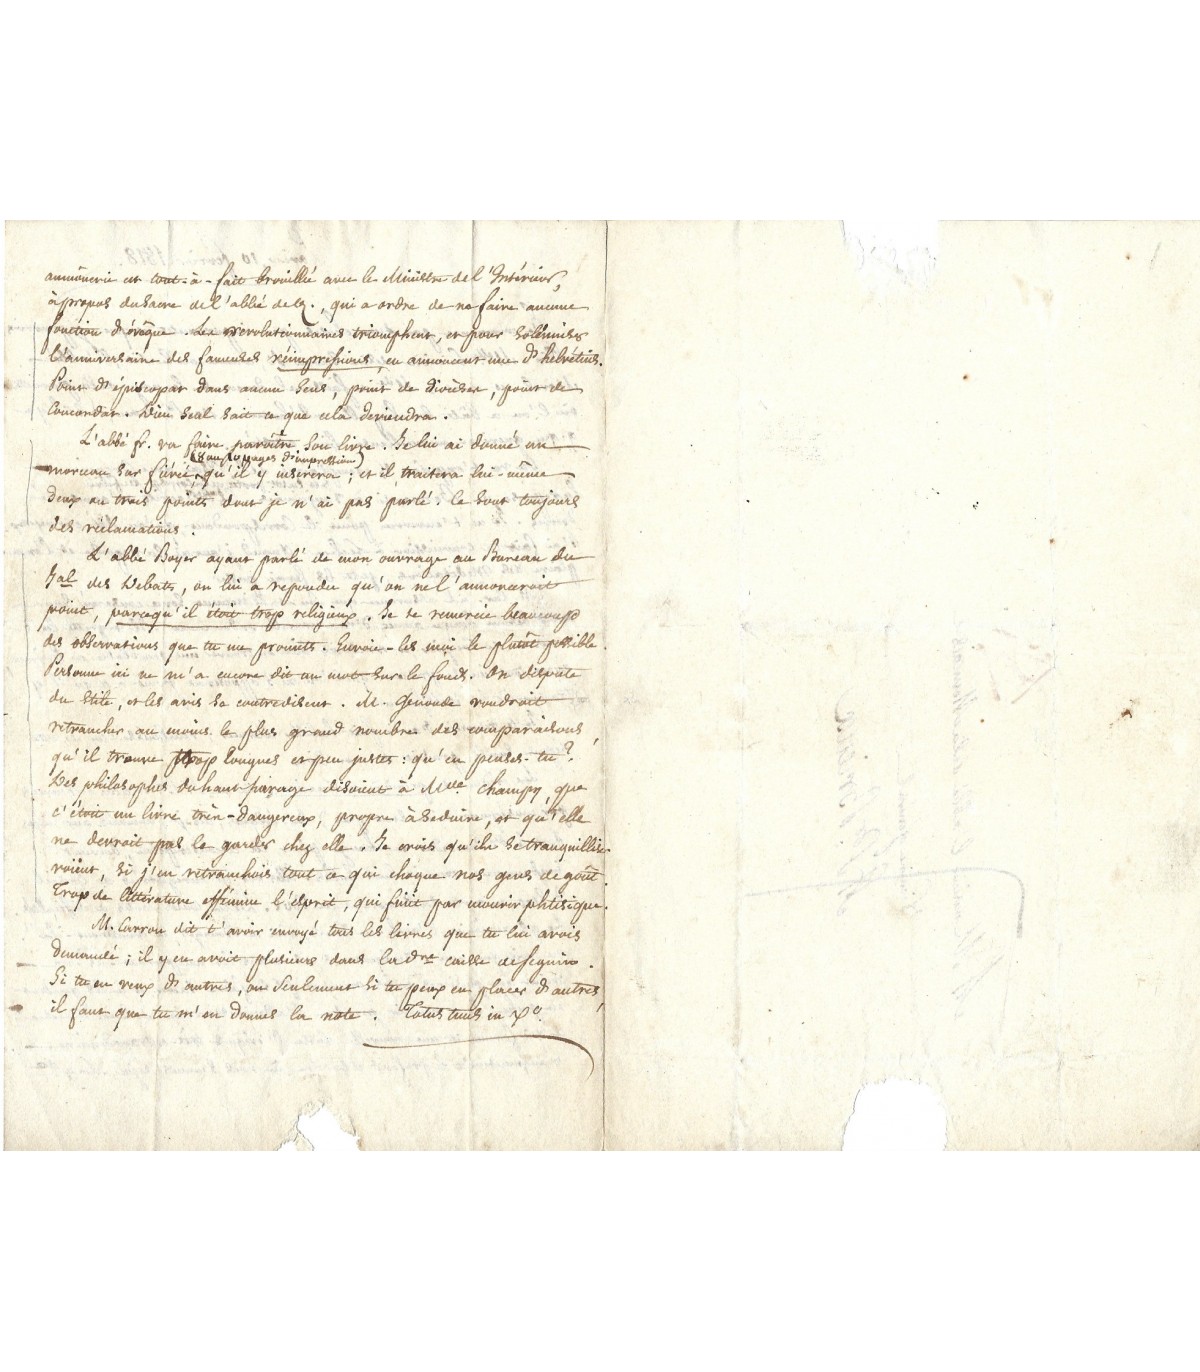 aumônerie est tout-à-fait brouillée avec le Ministre de l'Intérieur,
à propos du sacre de l'abbé de Q., qui a ordre de ne faire aucune
fonction d'évêque. Les révolutionnaires triomphent, et pour solenniser
l'anniversaire des fameuses réimpressions, en annoncent une d'helvétius.
Point d'épiscopat dans aucun sens, point de diocèses, point de
Concordat. Dieu seul sait ce que cela deviendra.
L'abbé fr. va faire paroître son livre. Je lui ai donné un
(8 ou 10 pages d'impression)
morceau sur qu'il y insérera; et il traitera lui-même
deux ou trois points dont je n'ai pas parlé. Ce sont toujours
des réclamations.
L'abbé Boyer ayant parlé de mon ouvrage au Bureau du
Jal. des Debats, on lui a repondu qu'on ne l'annonceroit
point, parcequ'il étoit trop religieux. Je te remercie beaucoup
des observations que tu me promets. Envoie-les moi le plutôt possible.
Personne ici ne m'a encore dit un mot sur le fonds. On dispute
du stile, et les avis se contredisent. M. Genoude voudroit
retrancher au moins le plus grand nombre des comparaisons,
qu'il trouve trop longues et peu justes: qu'en penses-tu?
Des philosophes du haut parage disoient à Mlle Champy, que
c'étoit un livre très-dangereux, propre à séduire, et qu'elle
ne devroit pas le garder chez elle. Je crois qu'ils se tranquillise-
roient, si j'en retranchois tout ce qui choque nos gens de goût.
Trop de littérature effémine l'esprit, qui finit par mourir phtisique.
M. Carron dit t'avoir envoyé tous les livres que tu lui avois
demandé; il y en avoit plusieurs dans la dre caisse de Seguin.
Si tu en veux d'autres, ou seulement si tu peux en placer d'autres,
il faut que tu m'en donnes la note. Totus tuus in Xo.